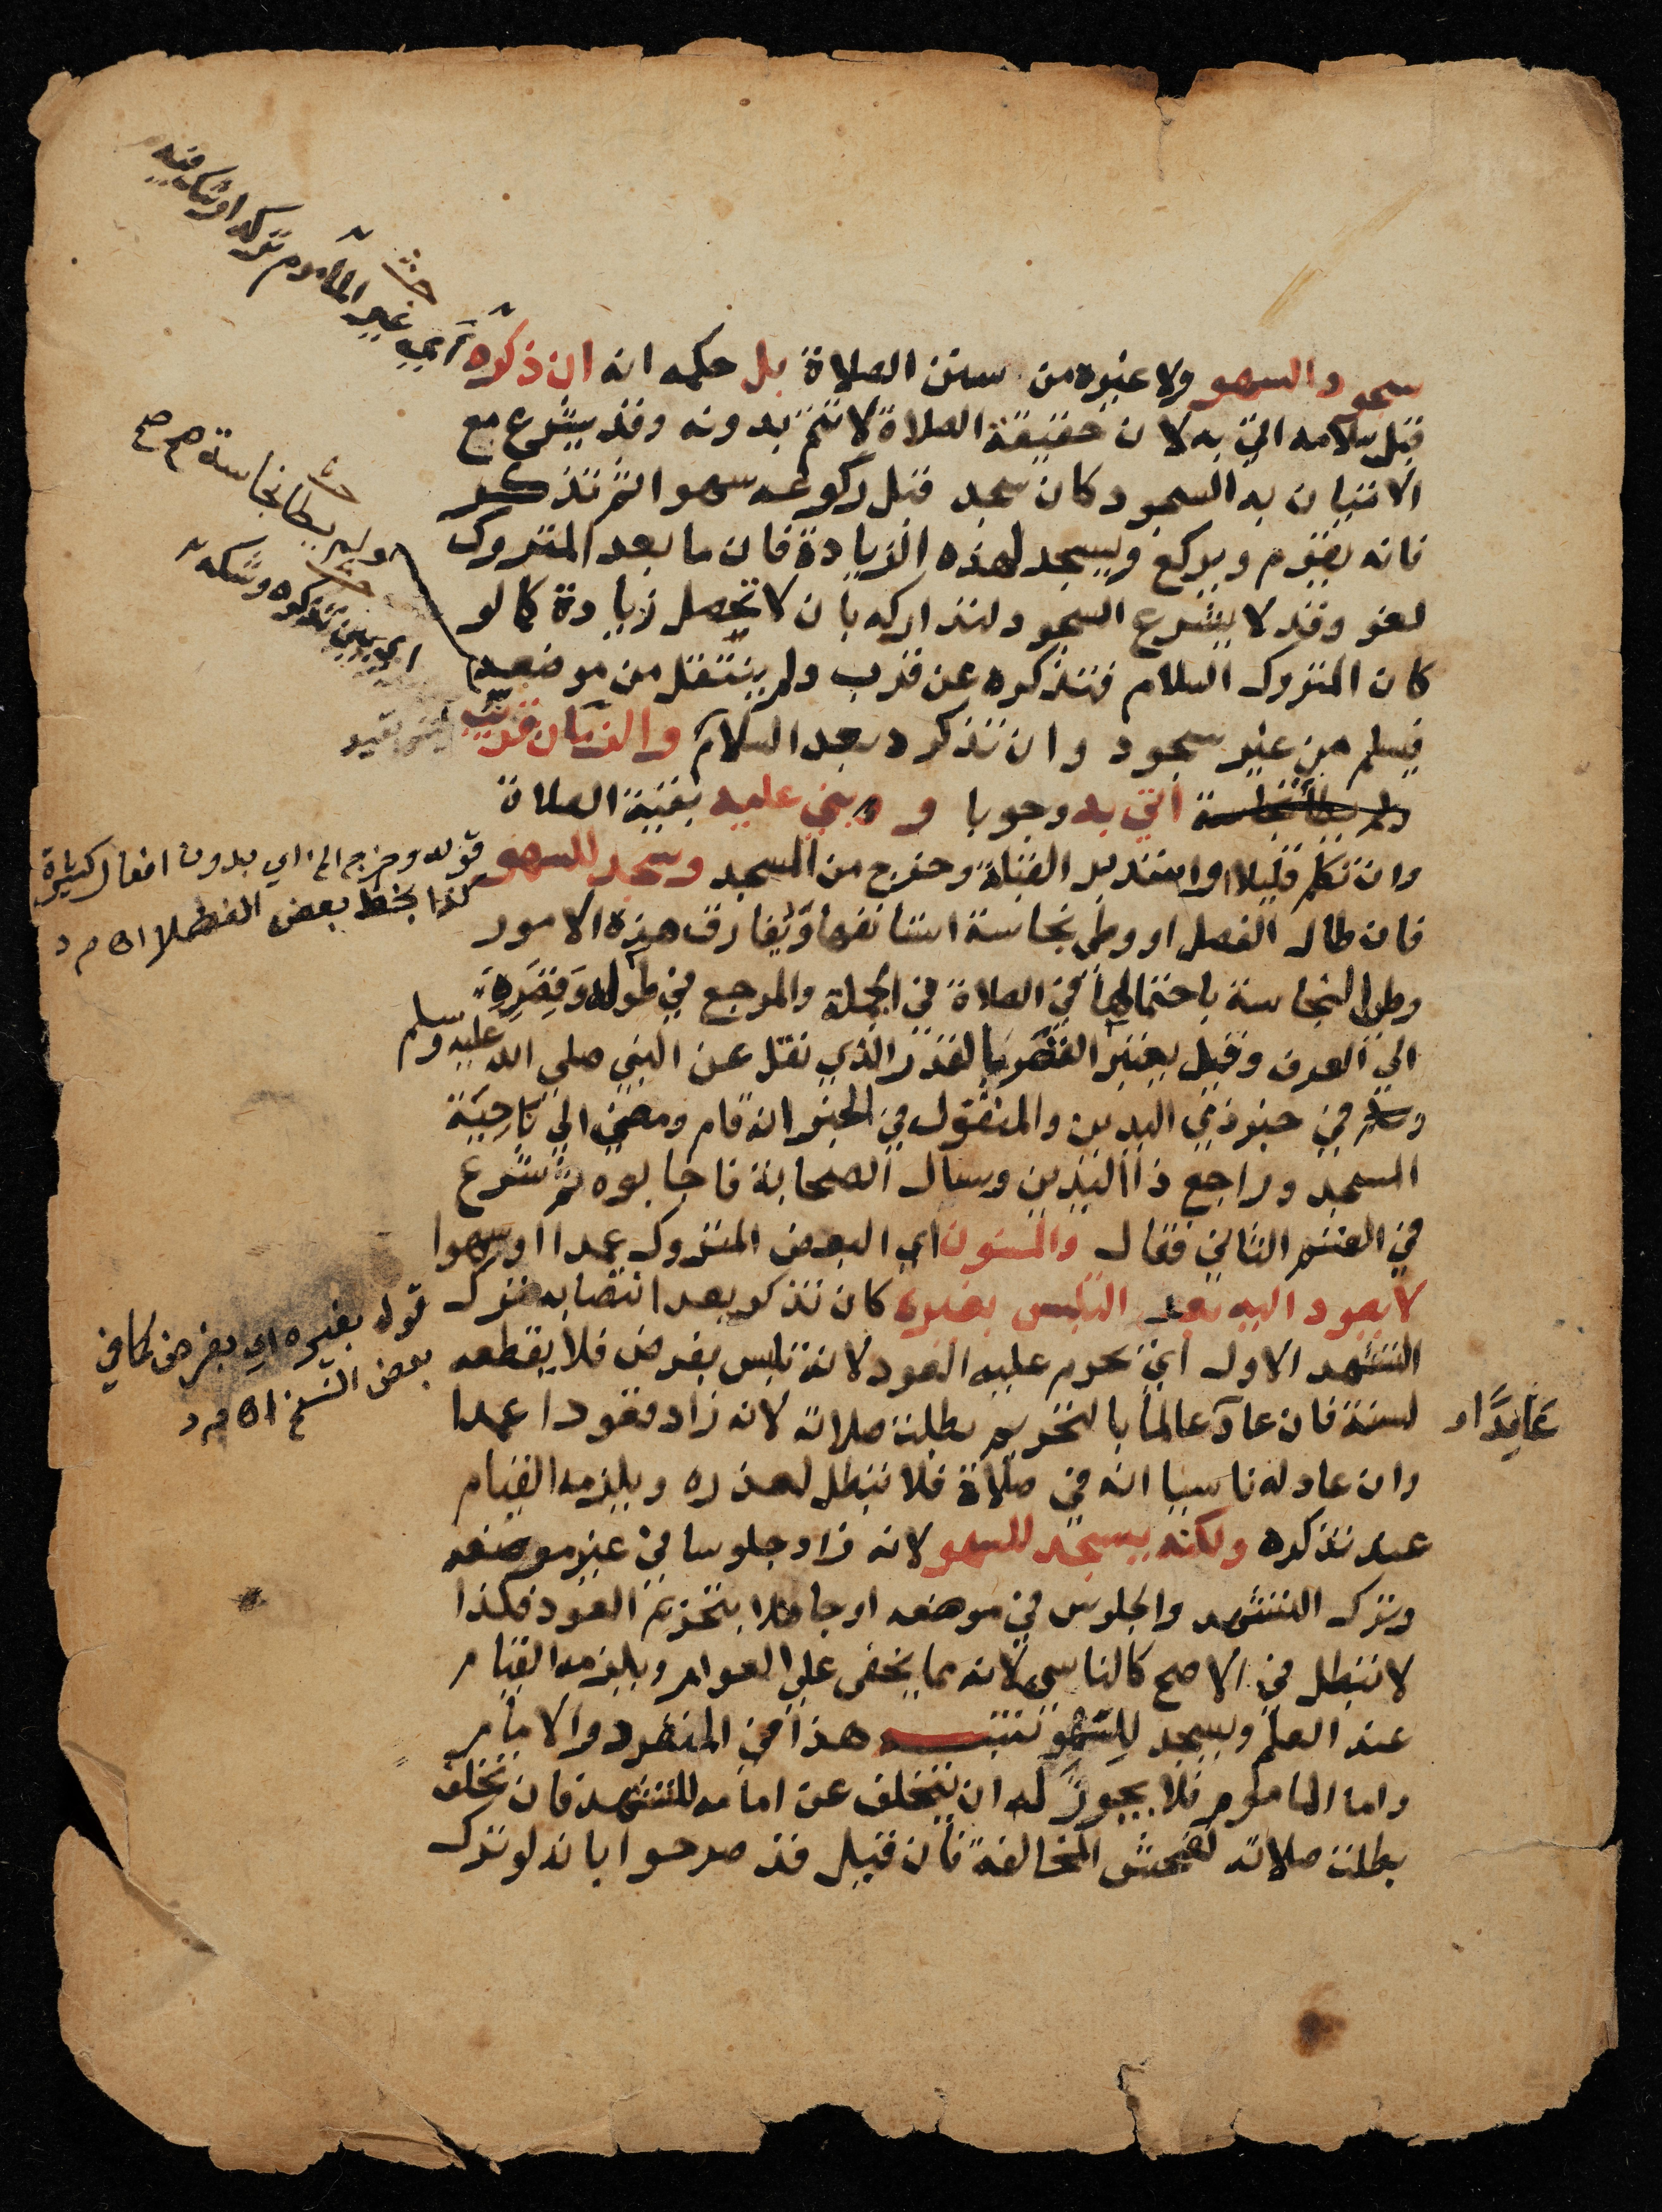 سجود السهو ولا غيره من سنن الصلاة بل حكمه انه ان ذكره
قبل سلامه اتى به لان حقيقة الصلاة لا تتم بدونه وقد يشرع مع
الاتيان به السجود كان سجد قبل ركوعه سهوا ثم تذكر
فانه يقوم ويركع ويسجد لهذه الزيادة فان ما بعد المتروك
لغو وقد لا يشرع السجود لتداركه بان لا تحصل زيادة كما لو
كان المتروك السلام فتذكره عن قرب ولم ينتقل من موضعه
فيسلم من غير سجود وان تذكره بعد السلام والزمان قريب
ولم يطأ نجاسة اتي به وجوبا و وبني عليه بقية الصلاة
وان تكلم قليلا او استدبر القبلة وخرج من المسجد وسجد للسهو
فان طال الفصل او وطي نجاسة استانفها وتفارق هذه الامور
وطي النجاسة باحتمالها في الصلاة في الجملة والمرجع في طوله وقصره
الي العرف وقيل يعتبر القصر بالقدر الذي نقل عن النبي صلي الله عليه وسلم
وسلم في خبر ذي اليدين والمنقول في الخبر انه قام ومضي الي ناحية
المسجد وراجع ذا اليدين وسال الصحابة فاجابوه ثم شرع
في القسم الثاني فقال والمسنون اي البعض المتروك عمدا او سهوا
لا يعود اليه بعد التلبس بغيره كان تذكر بعد انتصابه ترك
التشهد الاول اي يحرم عليه العود لانه تلبس بفرض فلا يقطعه
لسنة فان عاد عالما بالتحريم بطلت صلاته لانه زاد قعودا عمدا
عامدًا
وان عاد له ناسيا انه في صلاة فلا تبطل لعذره ويلزمه القيام
عند تذكره ولكنه يسجد للسهو لانه زاد جلوسا في غير موضعه
وترك التشهد والجلوس في موضعه او جاهلا بتحريم العود فكذا
لا تبطل في الاصح كالناسي لانه مما يخفى علي العوام ويلزمه القيام
عند العلم ويسجد للسهو تنبيه هذا في المنفرد والامام
واما الماموم فلا يجوز له ان يتخلف عن امامه للتشهد فان تخلف
بطلت صلاته لفحش المخالفة فان قيل قد صرحوا بانه لو ترك
اي غير المأموم تركه او شك فيه
ولم يطا نجاسة صح صح
اي بين تذكره وشكه
قوله وخرج الخ اي بدون افعال كثيرة
كذا بخط بعض الفضلا اه م د
قوله بغيره اي بفرض كما في
بعض النسخ اه م د